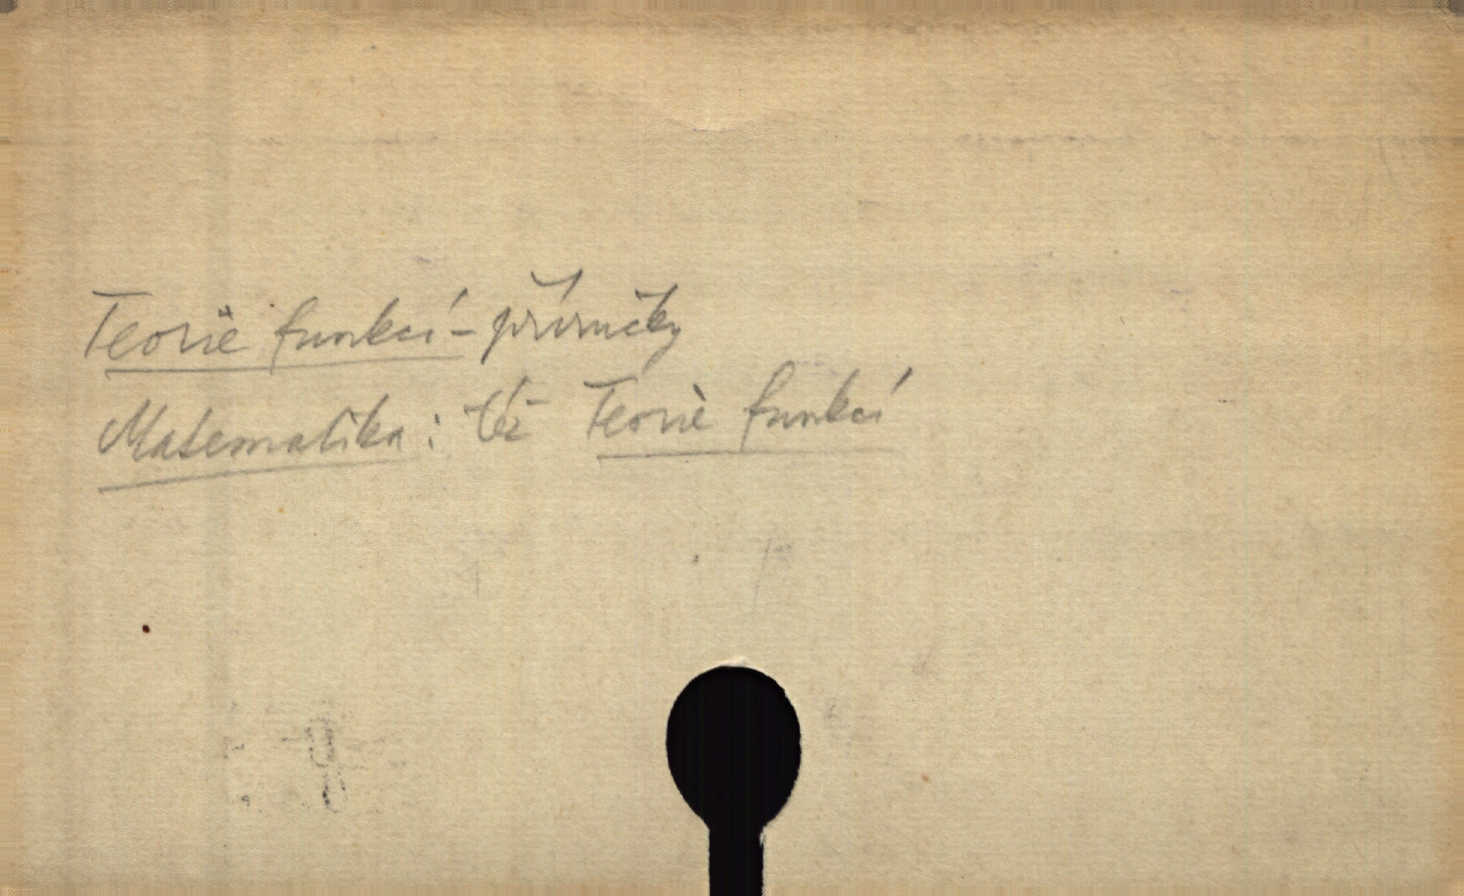 Teorie funkcí - příručky
Matematika: též Teorie funkcí